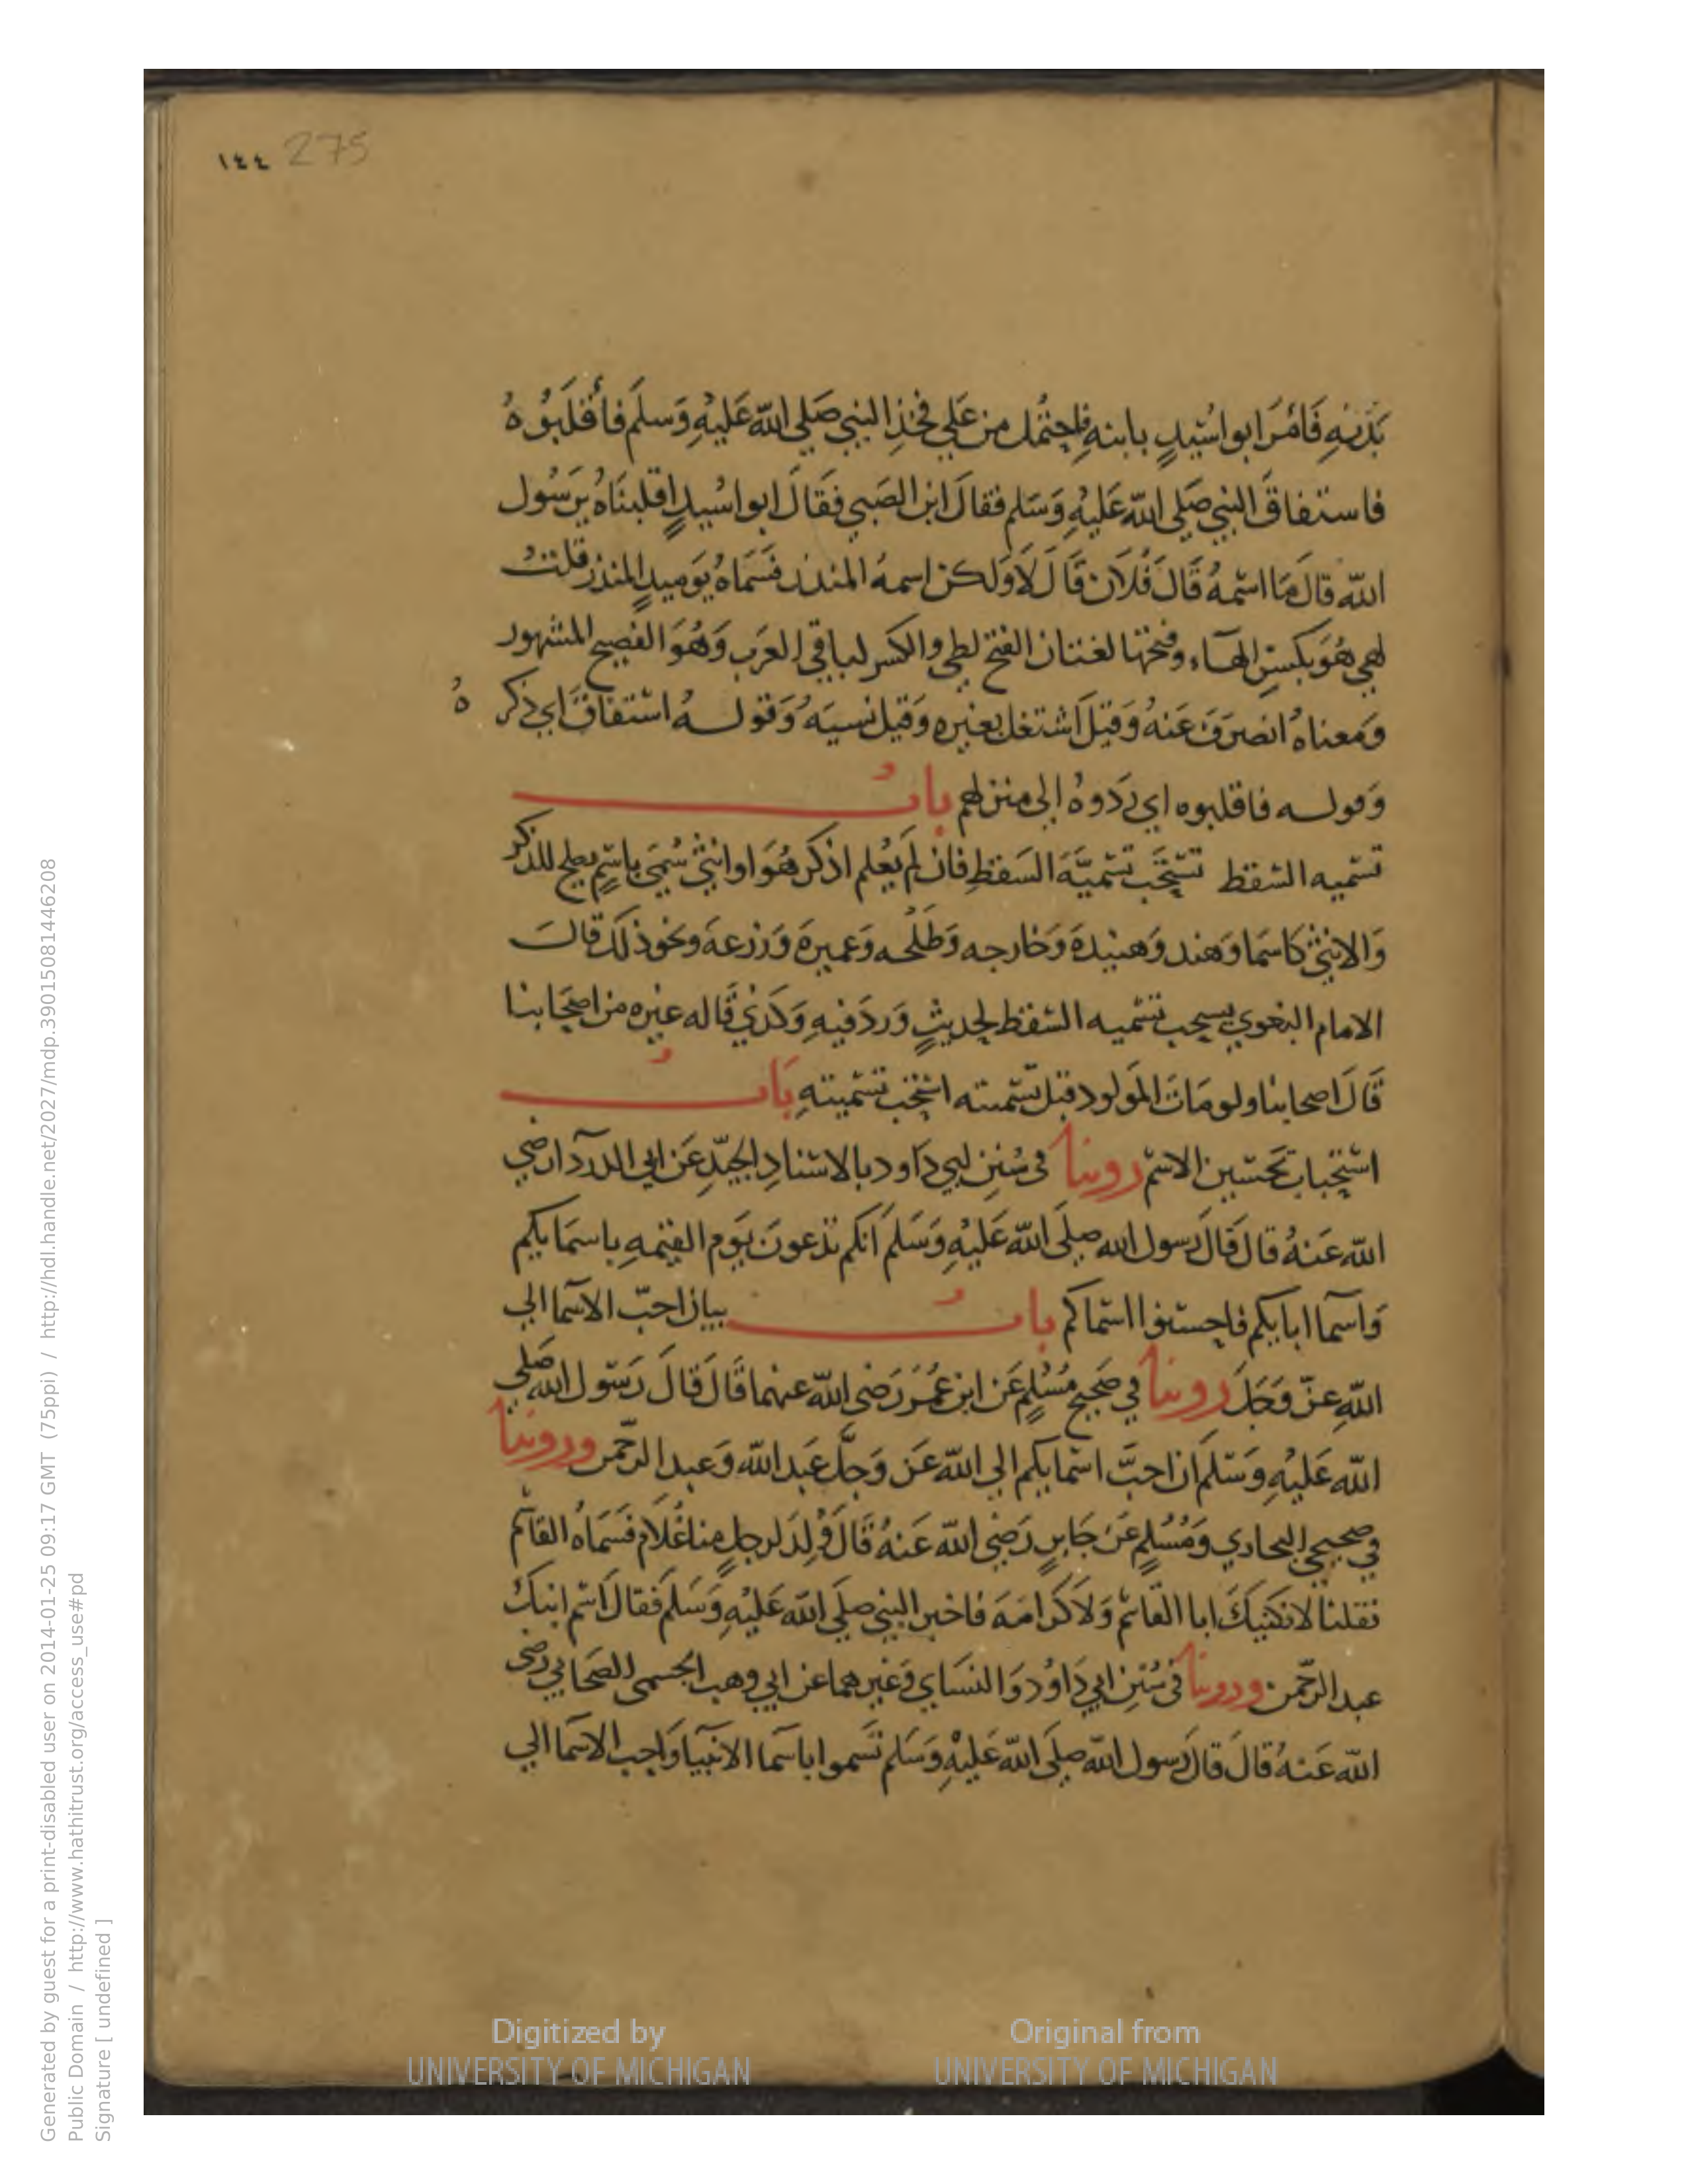 ١٤٤ 275
يديه فَامَرَ ابو اسَيدٍ بابنهِ فاحتُمل من عَلي فخذِ النبي صَلي الله عَليهِ وَسلمَ فأقلَبُوهُ
فاستفاقَ النبي صَلي الله عَليهِ وَسَلم فقالَ اين الصَبي فقَالَ ابو اسُيدٍ اقلبنَاهُ يرَسُول
الله قالَ مَا اسْمهُ قَالَ فُلَان قَالَ لَا وَلكن اسمهُ المنذر فسَمَاهُ يَوميدٍ المنذر قلت
لهي هُوَ بكسرِ الهاء وفتحها لغتان الفتح لطي والكسر لباقي العَرب وَهُوَ الفصيح المشهور
وَمعناهُ انصرَفَ عَنهُ وَقيلَ اشتغل بغيره وَقيل نسيَهُ وَقولهُ استفاقَ اي ذكرهُ
وَقوله فاقلبوه اي رَدوهُ إلى منزلهم بابٌ
تسْميه السقط تسْتَحَب تسْميَّةَ السَقطِ فان لم يُعلم اذكر هُوَ او انثي سُمَيَ باسْمٍ يصلح للذكر
وَالانثي كاسمَا وَهند وَهنيدةَ وَخارجه وَطَلْحه وَعميرةَ وَزرعة ونحو ذلكَ قالَ
الامام البغوي يستحب تسْميه السْقط لحديثٍ وَردَ فيهِ وَكذي قَاله غيره من اصحَابنا
قَالَ اصحابنا ولو مَاتَ المَولود قبل تسْميته استُحب تسْميتهِ بَابٌ
استِحباب تَحسْين الاسْم روينا في سُنن ابي دَاود بالاسْنادِ الجيّدِ عَن ابي الدردآ رضي
الله عَنهُ قال قَالَ رَسول الله صلَى الله عَليهِ وَسَلمَ انكم تدعونَ يَوم القيٰمهِ باسمَايكم
وَاسمآ ابايكم فاحسنوا اسْماكم بابٌ بيان احبّ الاسمآ الي
اللهِ عزّ وَجَل روينا في صَحيح مُسْلمٍ عَن ابن عُمَرَ رَضى الله عنهما قَالَ قالَ رَسُول اللهِ صَلي
الله عَليهِ وَسَلَمَ ان احبَّ اسْمايكم الي الله عَز وَجلّ عَبد الله وَعبد الرحمن وروينا
في صحيحي البخاري وَمُسْلمٍ عَن جَابرٍ رَضي الله عَنهُ قَالَ وُلِدَ لرجلٍ منا غُلَام فَسَمَاهُ القاسم
فقلنا لا نكنيكَ ابا القاسْم وَلا كرامَة فاخبر النبي صلَي الله عَليْهِ وَسَلَم فقالَ اسْم ابنكَ
عبد الرحمن وروينا في سُنن ابي دَاوُد وَالنسَاي وَغيرهما عن ابي وهب الجسمي الصَحابي رضى
الله عَنهُ قالَ قالَ رَسول الله صلَى الله عَليْهِ وَسَلم تسَموا باسمآ الانبيا وَاحب الاسمَا الي
Digitized by UNIVERSITY OF MICHIGAN
Original from UNIVERSITY OF MICHIGAN
Generated by guest for a print-disabled user on 2014-01-25 09:17 GMT (75ppi) / http://hdl.handle.net/2027/mdp.39015081446208
Public Domain / http://www.hathitrust.org/access_use#pd
Signature [ undefined ]